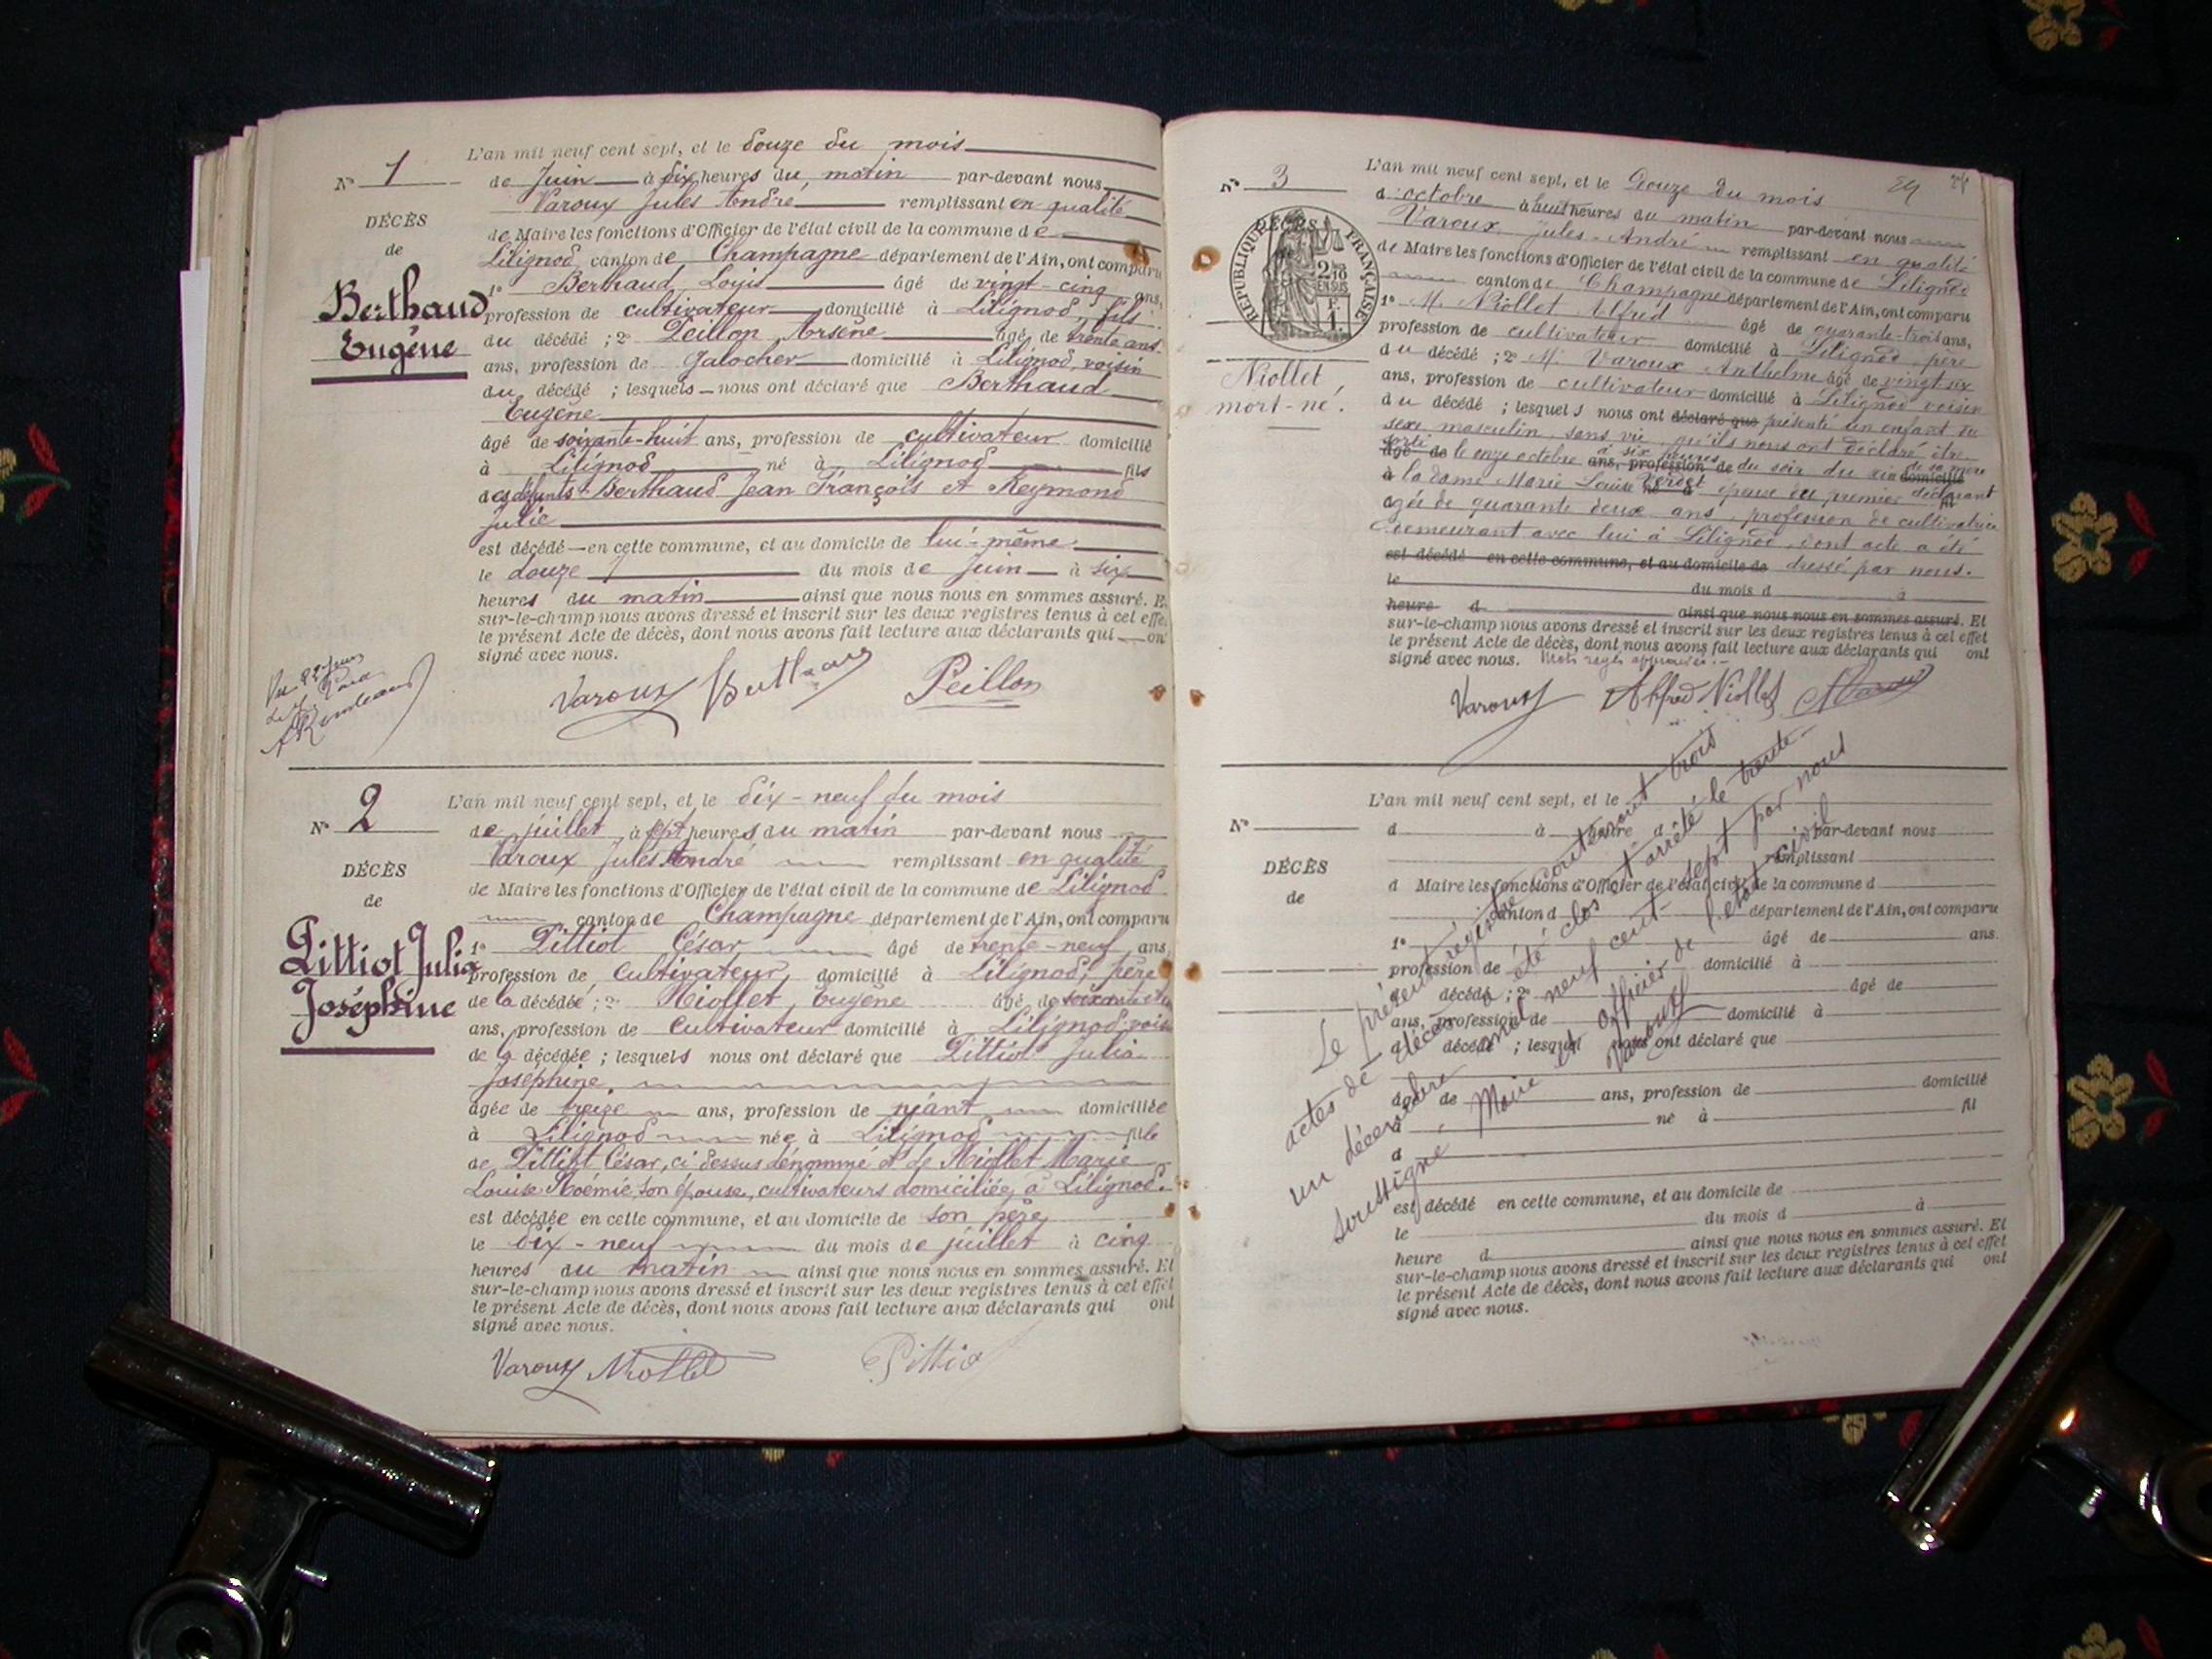 L'an mil neuf cent sept, et le douze du mois
N° 1
de Juin à dix heures du matin par-devant nous
Varoux Jules André remplissant en qualité
DÉCÈS
de Maire les fonctions d'Officier de l'état civil de la commune de
de
Lilignod, canton de Champagne département de l'Ain, ont comparu
Berthaud
Eugène
1° Berthaud Louis âgé de vingt-cinq ans,
profession de cultivateur domicilié à Lilignod, fils
du décédé ; 2° Peillon Arsène âgé de trente ans
ans, profession de galocher domicilié à Lilignod, voisin
du décédé ; lesquels nous ont déclaré que Berthaud
Eugène
âgé de soixante-huit ans, profession de cultivateur domicilié
à Lilignod né à Lilignod fils
des défunts Berthaud Jean François et Reymond
Julie
est décédé en cette commune, et au domicile de lui-même
le douze du mois de Juin à six
heures du matin ainsi que nous nous en sommes assuré. E
sur-le-champ nous avons dressé et inscrit sur les deux registres tenus à cet effe
le présent Acte de décès, dont nous avons fait lecture aux déclarants qui ont
signé avec nous.
Varoux Berthaud Peillon
L'an mil neuf cent sept, et le dix-neuf du mois
N° 2
de juillet à sept heures du matin par-devant nous
Varoux Jules André remplissant en qualité
DÉCÈS
de Maire les fonctions d'Officier de l'état civil de la commune de Lilignod
de
canton de Champagne département de l'Ain, ont comparu
Pittiot Julia
Joséphine
1° Pittiot César âgé de trente-neuf ans,
profession de cultivateur domicilié à Lilignod, père
de la décédée ; 2° Niollet Eugène âgé de
ans, profession de cultivateur domicilié à Lilignod voisin
de la décédée ; lesquels nous ont déclaré que Pittiot Julia
Joséphine
âgée de treize ans, profession de néant domiciliée
à Lilignod née à Lilignod fille
de Pittiot César, ci dessus dénommé et de Niollet Marie
Louise Noémie, son épouse, cultivateurs domiciliés à Lilignod.
est décédée en cette commune, et au domicile de son père
le dix-neuf du mois de juillet à cinq
heures du matin ainsi que nous nous en sommes assuré. Et
sur-le-champ nous avons dressé et inscrit sur les deux registres tenus à cet effet
le présent Acte de décès, dont nous avons fait lecture aux déclarants qui ont
signé avec nous.
Varoux Niollet Pittiot
L'an mil neuf cent sept, et le Douze du mois
N° 3
d'octobre à huit heures du matin par-devant nous
Varoux Jules-André remplissant en qualité
de Maire les fonctions d'Officier de l'état civil de la commune de Lilignod
canton de Champagne département de l'Ain, ont comparu
DÉCÈS
RÉPUBLIQUE FRANÇAISE
Niollet
mort-né.
1° M. Niollet Alfred âgé de quarante-trois ans,
profession de cultivateur domicilié à Lilignod, père
du décédé ; 2° M. Varoux Anthelme âgé de vingt six
ans, profession de cultivateur domicilié à Lilignod voisin
du décédé ; lesquels nous ont déclaré que présenté un enfant du
sexe masculin, sans vie, qu'ils nous ont déclaré être
sorti
âgé de le onze octobre à six heures ans, profession de du soir du sein de sa mère domicilié
à la dame Marie Louise Verdet né à épouse du premier déclarant fil
agée de quarante deux ans, profession de cultivatrice
demeurant avec lui à Lilignod, dont acte a été
est décédé en cette commune, et au domicile de dressé par nous.
le du mois d à
heure d ainsi que nous nous en sommes assuré. Et
sur-le-champ nous avons dressé et inscrit sur les deux registres tenus à cet effet
le présent Acte de décès, dont nous avons fait lecture aux déclarants qui ont
signé avec nous. Mots rayés approuvés.
Varoux Alfred Niollet Varoux
L'an mil neuf cent sept, et le
N°
d à heure d par-devant nous
remplissant
DÉCÈS
d Maire les fonctions d'Officier de l'état civil de la commune d
de
canton d département de l'Ain, ont comparu
1° âgé de ans
profession de domicilié à
décédé ; 2° âgé de
ans, profession de domicilié à
décédé ; lesquel nous ont déclaré que
âgé de ans, profession de domicilié
à né à fil
d
est décédé en cette commune, et au domicile de
le du mois d à
heure d ainsi que nous nous en sommes assuré. Et
sur-le-champ nous avons dressé et inscrit sur les deux registres tenus à cet effet
le présent Acte de décès, dont nous avons fait lecture aux déclarants qui ont
signé avec nous.
Le présent registre contenant trois
actes de décès a été clos et arrêté le trente-
un décembre mil neuf cent-sept par nous
soussigné, Maire et officier de l'état civil
Varoux